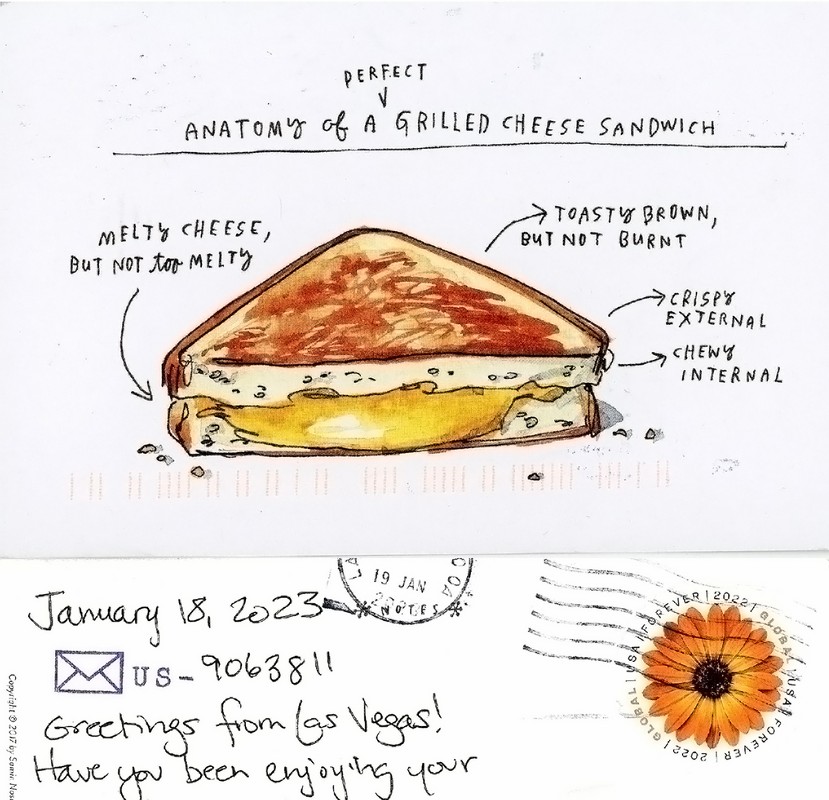 PERFECT
ANATOMY of A GRILLED CHEESE SANDWICH
MELTY CHEESE,
BUT NOT too MELTY
TOASTY BROWN,
BUT NOT BURNT
CRISPY
EXTERNAL
CHEWY
INTERNAL
19 JAN
NOTES
January 18, 2023
US-9063811
Greetings from Las Vegas!
Have you been enjoying your
GLOBAL | USA | FOREVER | 2022 | GLOBAL | USA | FOREVER | 2022 |
Copyright © 2017 by